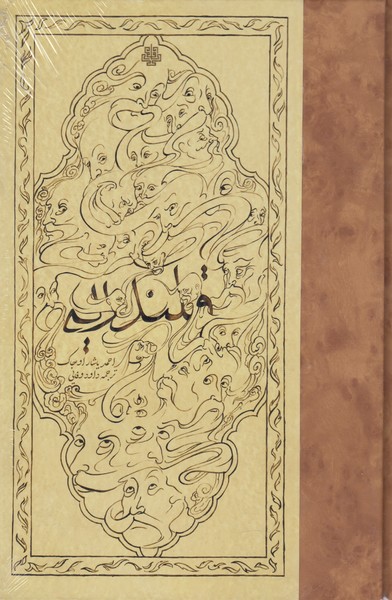 قلندریه
احمد یاشار اوجاک
ترجمه داود وفائی